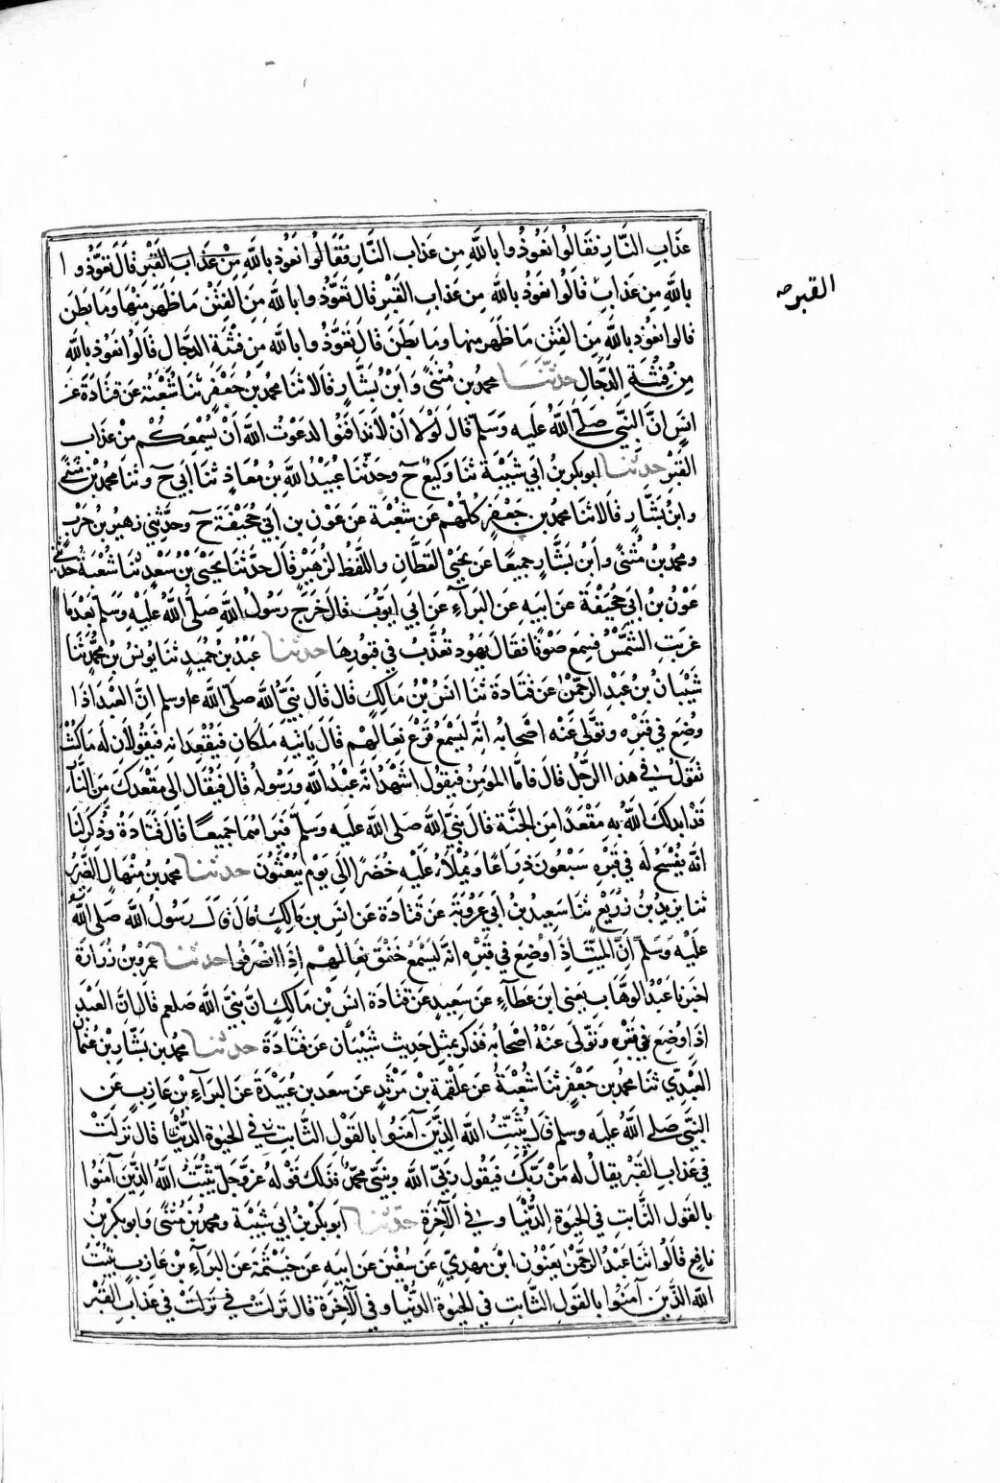 عذاب النار فقالوا نعوذ بالله من عذاب النار فقالوا نعوذ بالله من عذاب القبر قال تعوذوا
بالله من عذاب قالوا نعوذ بالله من عذاب القبر قال تعوذوا بالله من الفتن ما ظهر منها وما بطن
القبر صح
قالوا نعوذ بالله من الفتن ما ظهر منها وما بطن قال تعوذوا بالله من فتنة الدجال قالوا نعوذ بالله
من فتنة الدجال حدثنا محمد بن مثنى وابن بشار قالا ثنا محمد بن جعفر ثنا شعبة عن قتادة عن
انس ان النبي صلى الله عليه وسلم قال لولا ان لا تدافنوا لدعوت الله ان يسمعكم من عذاب
القبر حدثنا ابو بكر بن ابي شيبة ثنا وكيع ح وحدثنا عبيد الله بن معاذ ثنا ابي ح وثنا محمد بن مثنى
وابن بشار قالا ثنا محمد بن جعفر كلهم عن شعبة عن عون بن ابي جحيفة ح وحدثني زهير بن حرب
ومحمد بن مثنى وابن بشار جميعا عن يحيى القطان واللفظ لزهير قال حدثنا يحيى بن سعد ثنا شعبة حدثني
عون بن ابي جحيفة عن ابيه عن البراء عن ابي ايوب قال خرج رسول الله صلى الله عليه وسلم بعد ما
غربت الشمس فسمع صوتا فقال يهود تعذب في قبورها حدثنا عبد بن حميد ثنا يونس بن محمد ثنا
شيبان بن عبد الرحمن عن قتادة ثنا انس بن مالك قال قال نبي الله صلى الله ع وسلم ان العبد اذا
وضع في قبره وتولى عنه اصحابه انه ليسمع قرع نعالهم قال ياتيه ملكان فيقعدانه فيقولان له ما كنت
تقول في هذا الرجل قال فاما المومن فيقول اشهد انه عبد الله ورسوله قال فيقال الى مقعدك من النار
قد ابدلك الله به مقعدا من الجنة قال نبي الله صلى الله عليه وسلم فيراهما جميعا قال قتادة وذكر لنا
انه يفسح له في قبره سبعون ذراعا ويملاء عليه خضرا الى يوم يبعثون حدثنا محمد بن منهال الضرير
ثنا يزيد بن زريع ثنا سعيد بن ابي عروبة عن قتادة عن انس بن مالك قال قال رسول الله صلى الله
عليه وسلم ان الميت اذا وضع في قبره انه ليسمع خفق نعالهم اذا انصرفوا حدثنا عمرو بن زرارة
اخبرنا عبد الوهاب يعني ابن عطاء عن سعيد عن قتادة انس بن مالك ان نبي الله صلعم قال ان العبد
اذا وضع في قبره وتولى عنه اصحابه فذكر بمثل حديث شيبان عن قتادة حدثنا محمد بن بشار بن عثمان
العبدي ثنا محمد بن جعفر ثنا شعبة عن علقمة بن مرثد عن سعد بن عبيدة عن البراء بن عازب عن
النبي صلى الله عليه وسلم قال يثبت الله الذين آمنوا بالقول الثابت في الحيوة الدنيا قال نزلت
في عذاب القبر يقال له من ربك فيقول ربي الله ونبيي محمد فذلك قوله عز وجل يثبت الله الذين آمنوا
بالقول الثابت في الحيوة الدنيا وفي الآخرة حدثنا ابو بكر بن ابي شيبة ومحمد بن مثنى وابو بكر بن
نافع قالوا ثنا عبد الرحمن يعنون ابن مهدي عن سفين عن ابيه عن خيثمة عن البراء بن عازب يثبت
الله الذين آمنوا بالقول الثابت في الحيوة الدنيا وفي الآخرة قال نزلت في نزلت في عذاب القبر